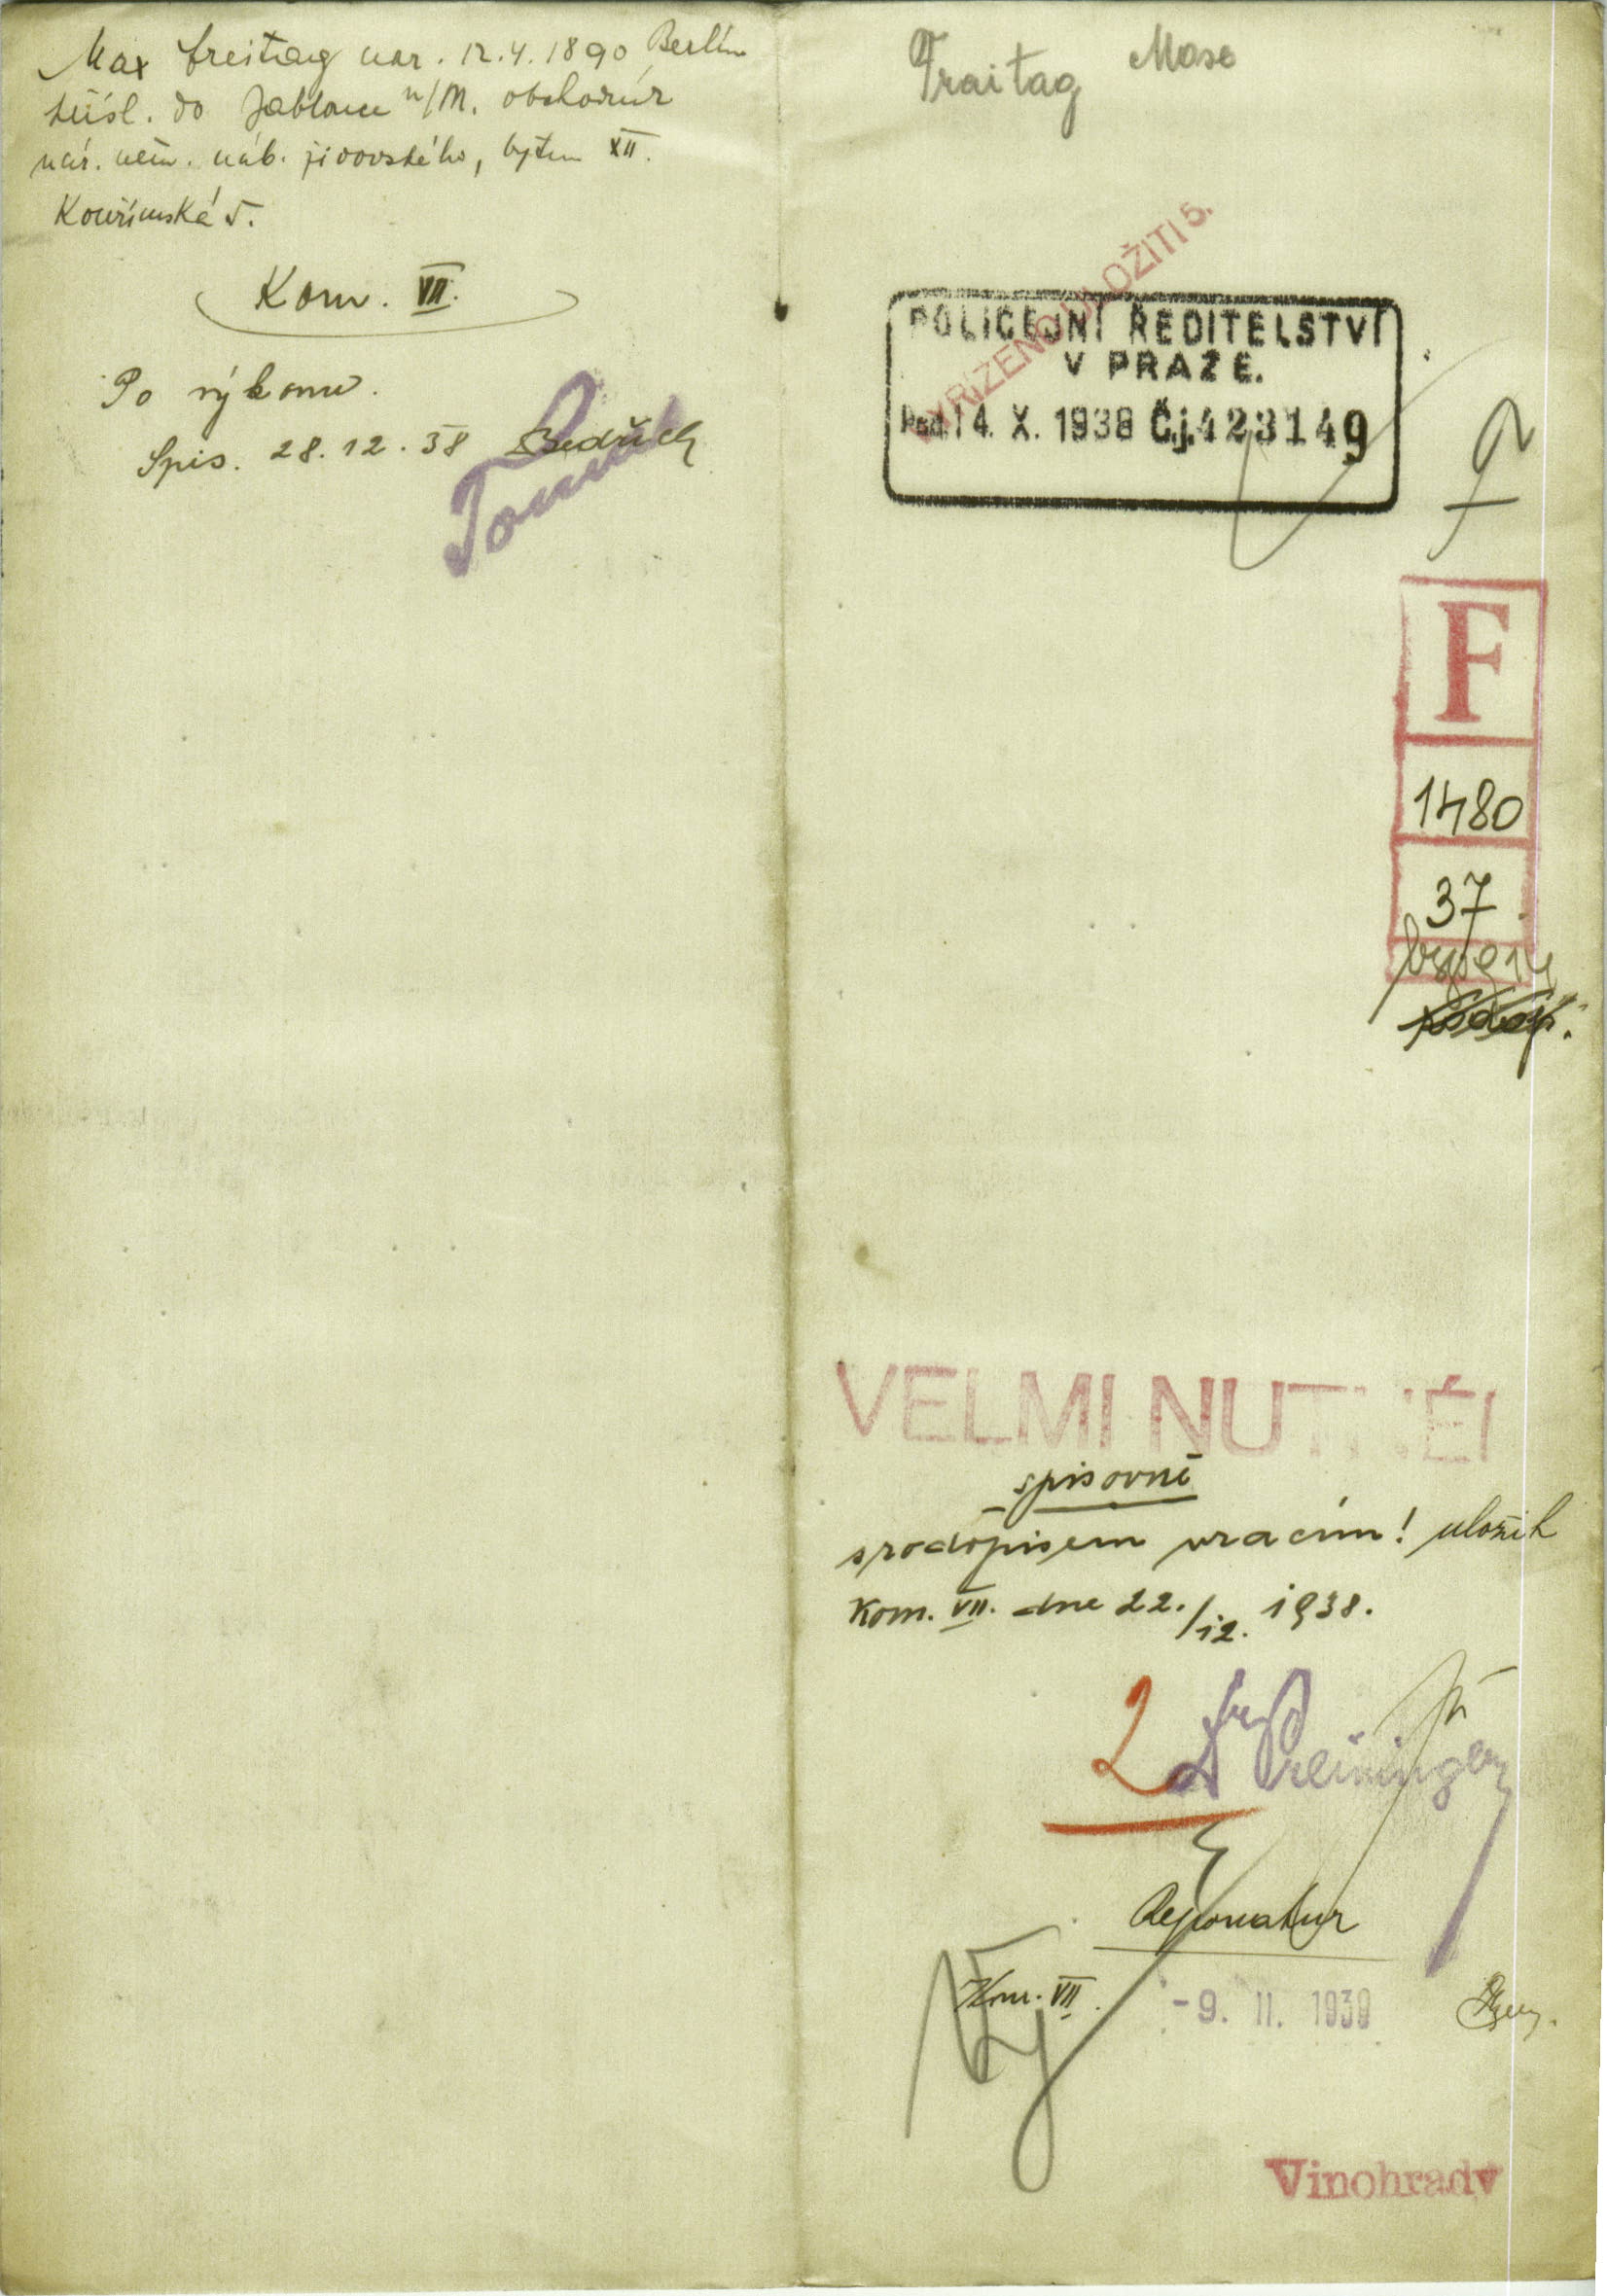 Max Freitag nar. 12.4.1890 Berlín
přísl. do Jablonce n/N. obchodník
nár. něm. náb. židovského, bytem XII.
Kouřimská 5.
Kom. VII.
Po výkonu.
Spis. 28.12.38 Bedřich
Freitag
VYŘÍZENO ULOŽITI 5.
POLICEJNÍ ŘEDITELSTVÍ
V PRAZE.
14. X. 1938 Č.j. 423149
F
1480
37
VELMI NUTNÉ!
spisovně
vracím!
Kom. VII. dne 22./12. 1938.
2 Dr Preininger
Kom. VII.
-9. II. 1939
Vinohrady